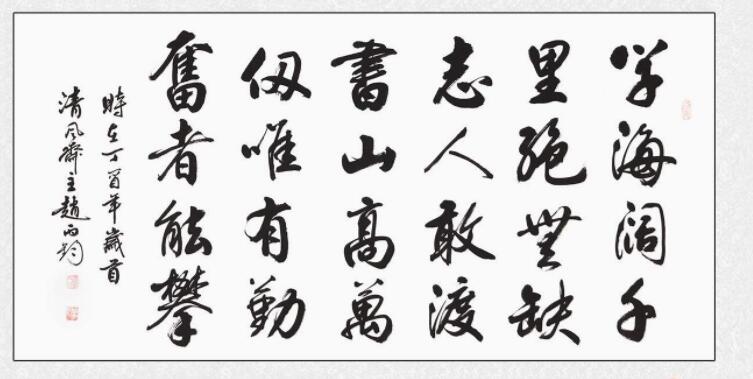 学海阔千
里絶無缺
志人敢渡
書山高萬
仞唯有勤
奮者能攀
時在丁酉年歲首
清風齋主趙